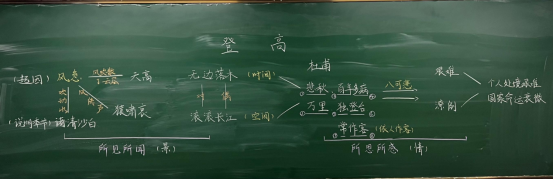 登 高
杜甫
(起因) 风急 天高
猿啸哀
渚清沙白
无边落木 (时间)
滚滚长江 (空间)
悲秋 百年多病
万里 独登台
常作客
八可悲
艰难
潦倒
个人处境艰难
国家命运衰微
所见所闻 (景)
所思所感 (情)